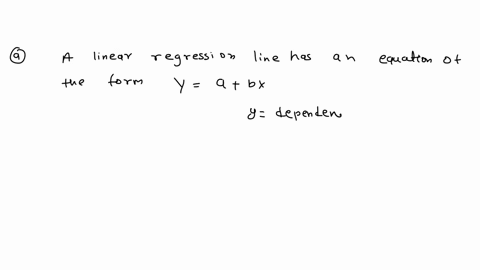 ⓐ A linear regression line has an equation of
the form Y = a + bx
y = dependen